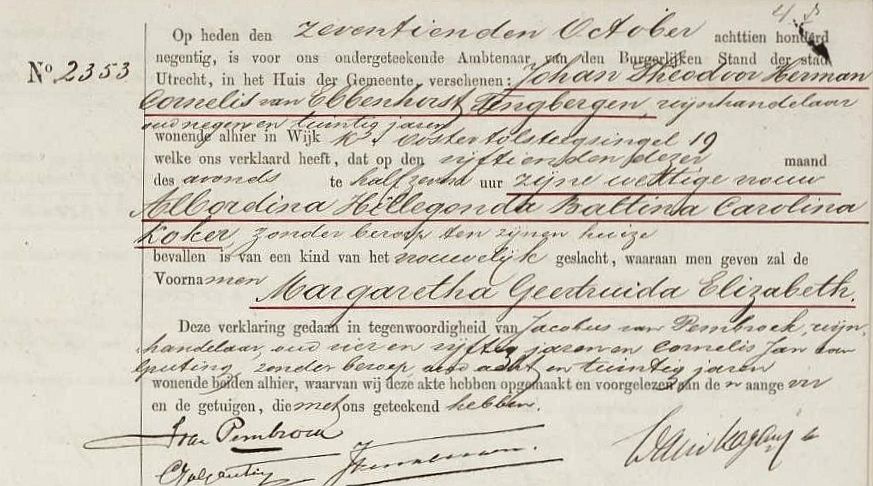 Op heden den zeventienden October achttien honderd
negentig, is voor ons ondergeteekende Ambtenaar van den Burgerlijken Stand der stad
No. 2353 Utrecht, in het Huis der Gemeente, verschenen: Johan Theodoor Herman
Cornelis van Ebbenhorst Tengbergen, wijnhandelaar
oud negen en twintig jaren
wonende alhier in Wijk K, Oostertolsteegsingel 19
welke ons verklaard heeft, dat op den vijftienden dezer maand
des avonds te half zeven uur zijne wettige vrouw
Albordina Hillegonda Battina Carolina
Koker, zonder beroep ten zijnen huize
bevallen is van een kind van het vrouwelijk geslacht, waaraan men geven zal de
Voornamen Margaretha Geertruida Elizabeth.
Deze verklaring gedaan in tegenwoordigheid van Jacobus van Pembroek, wijn-
handelaar, oud vier en vijftig jaren en Cornelis Jan van
zonder beroep, oud acht en twintig jaren
wonende beiden alhier, waarvan wij deze akte hebben opgemaakt en voorgelezen aan de aangever
en de getuigen, die met ons geteekend hebben.